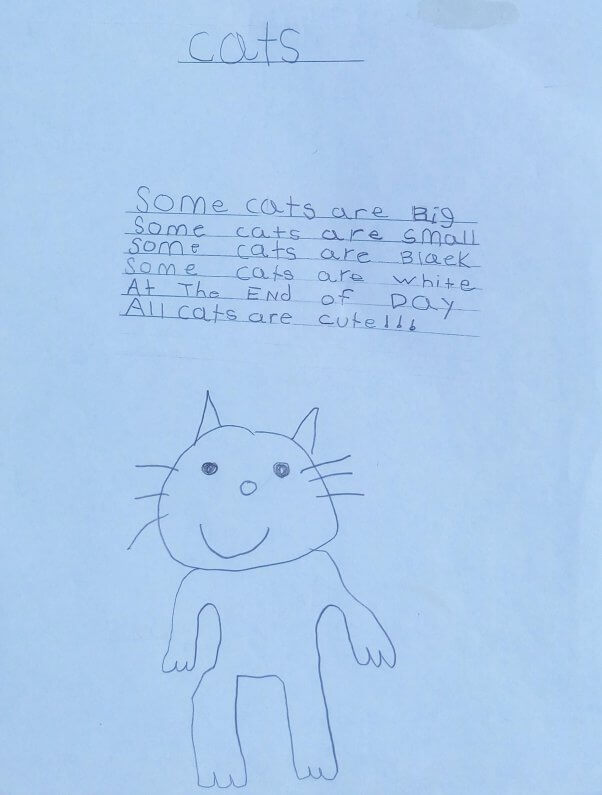 cats
Some cats are Big
Some cats are small
Some cats are Black
Some cats are white
At The End of DAY
All cats are cute!!!